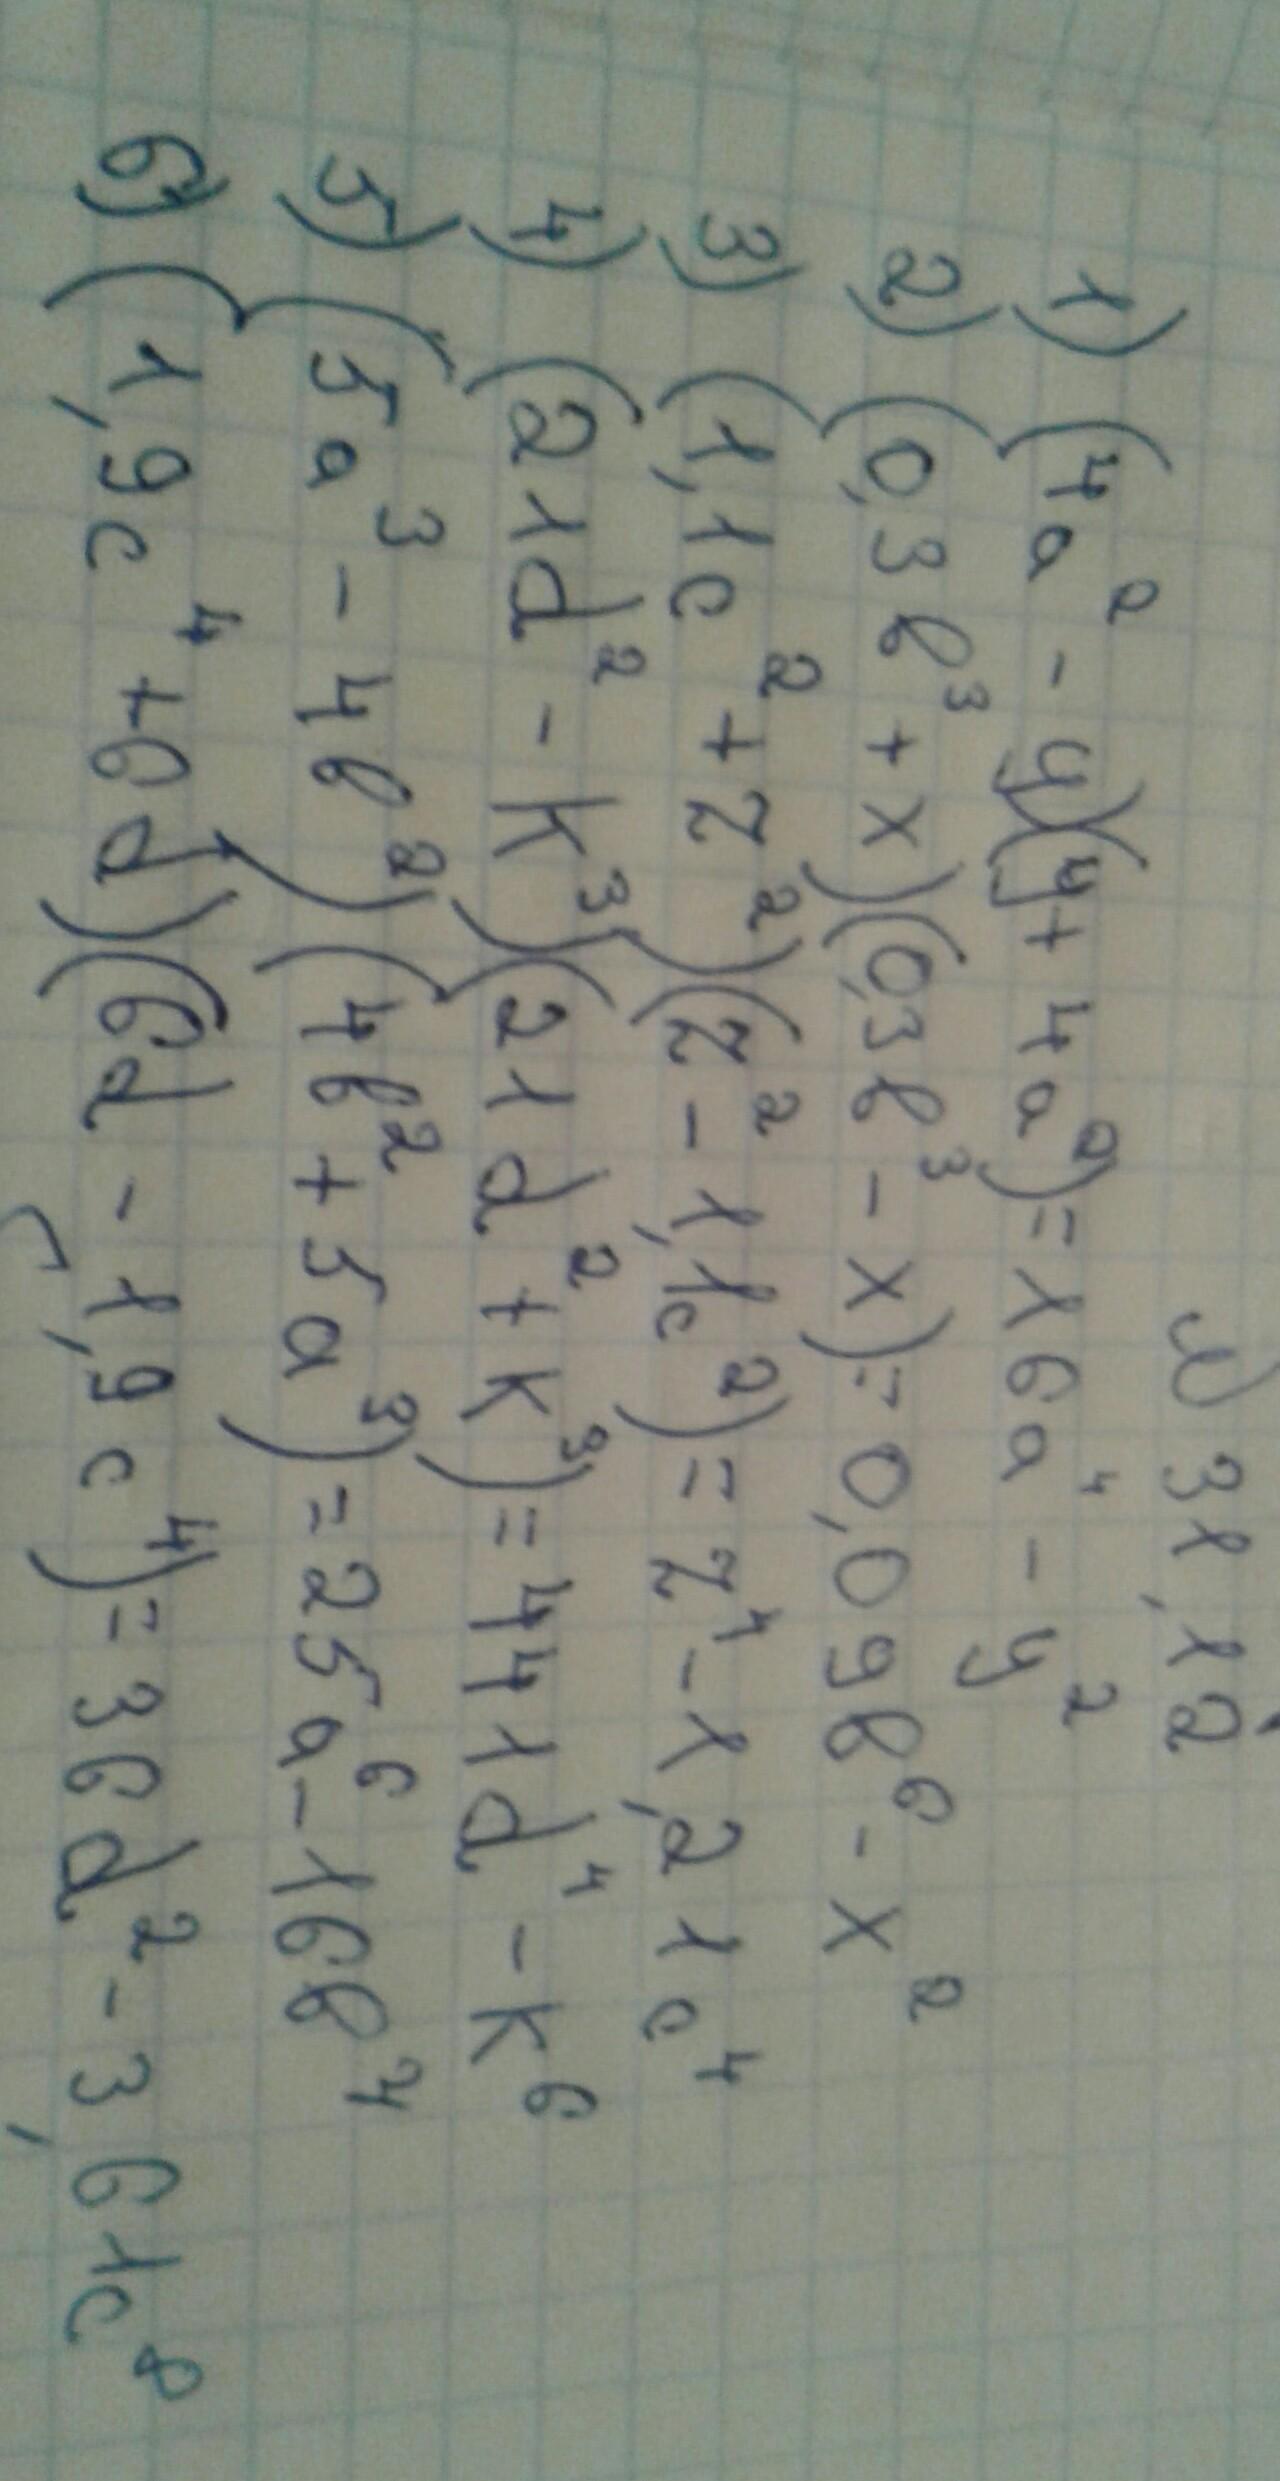 № 31.12
1) (4a² - y)(y + 4a²) = 16a⁴ - y²
2) (0,3b³ + x)(0,3b³ - x) = 0,09b⁶ - x²
3) (1,1c² + z²)(z² - 1,1c²) = z⁴ - 1,21c⁴
4) (21d² - k³)(21d² + k³) = 441d⁴ - k⁶
5) (5a³ - 4b²)(4b² + 5a³) = 25a⁶ - 16b⁴
6) (1,9c⁴ + 6d)(6d - 1,9c⁴) = 36d² - 3,61c⁸